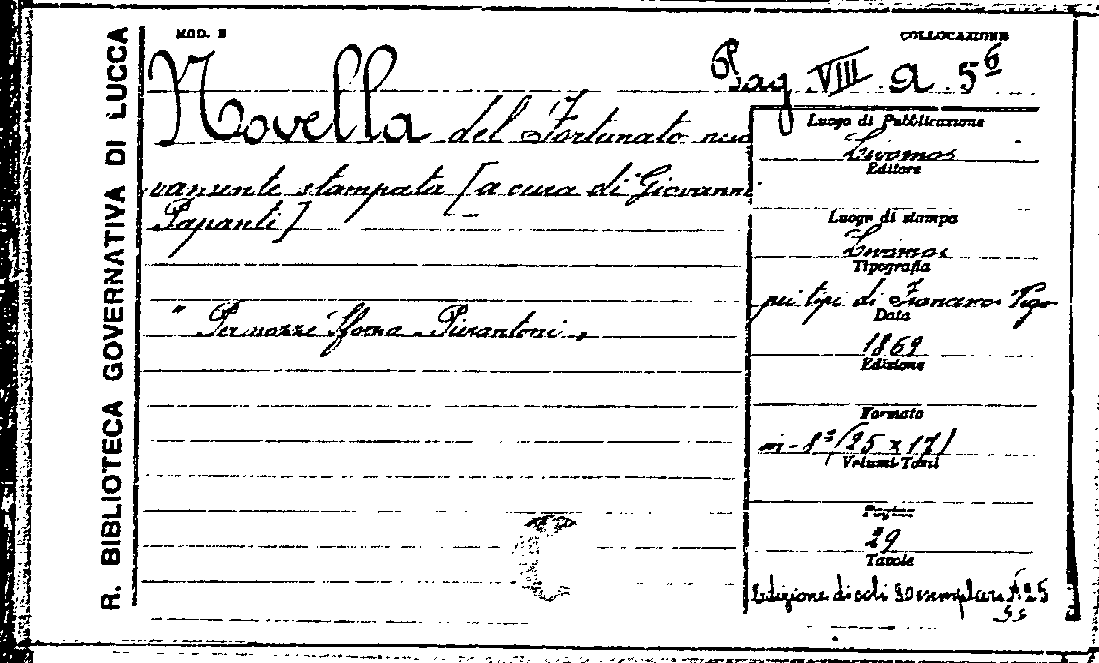 R. BIBLIOTECA GOVERNATIVA DI LUCCA
MOD. E
COLLOCAZIONE
Pag VIII. a. 5⁶
Novella del Fortunato nuo
vamente stampata [a cura di Giovanni
Papanti]
" Per nozze Sforza Pierantoni "
Luogo di Pubblicazione
Livorno
Editore
Luogo di stampa
Livorno
Tipografia
pei tipi di Francesco Vigo
Data
1869
Edizione
Formato
in-8° (25 x 17)
Volumi Tomi
Pagine
29
Tavole
Edizione di soli esemplari